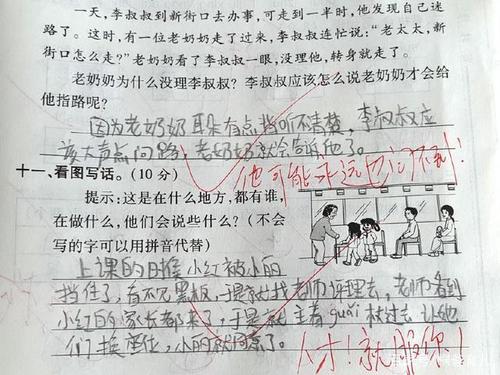 一天,李叔叔到新街口去办事,可走到一半时,他发现自己迷
路了。这时,有一位老奶奶走了过来,李叔叔连忙说:“老太太,新
街口怎么走?”老奶奶看了李叔叔一眼,没理他,转身就走了。
老奶奶为什么没理李叔叔?李叔叔应该怎么说老奶奶才会给
他指路呢?
因为老奶奶耳朵有点挡听不清楚,李叔叔应
该大声点问路,老奶奶就会告诉他了。
他可能永远也问不到!
十一、看图写话。(10 分)
提示:这是在什么地方,都有谁,
在做什么,他们会说些什么?(不会
写的字可以用拼音代替)
上课的时候小红被小丽
挡住了,看不见黑板,于是就找老师评理去,老师看到
小红的家长都来了,于是就主着guǎi杖过去让他
们换座位,小丽就同意了。
人才!就服你!